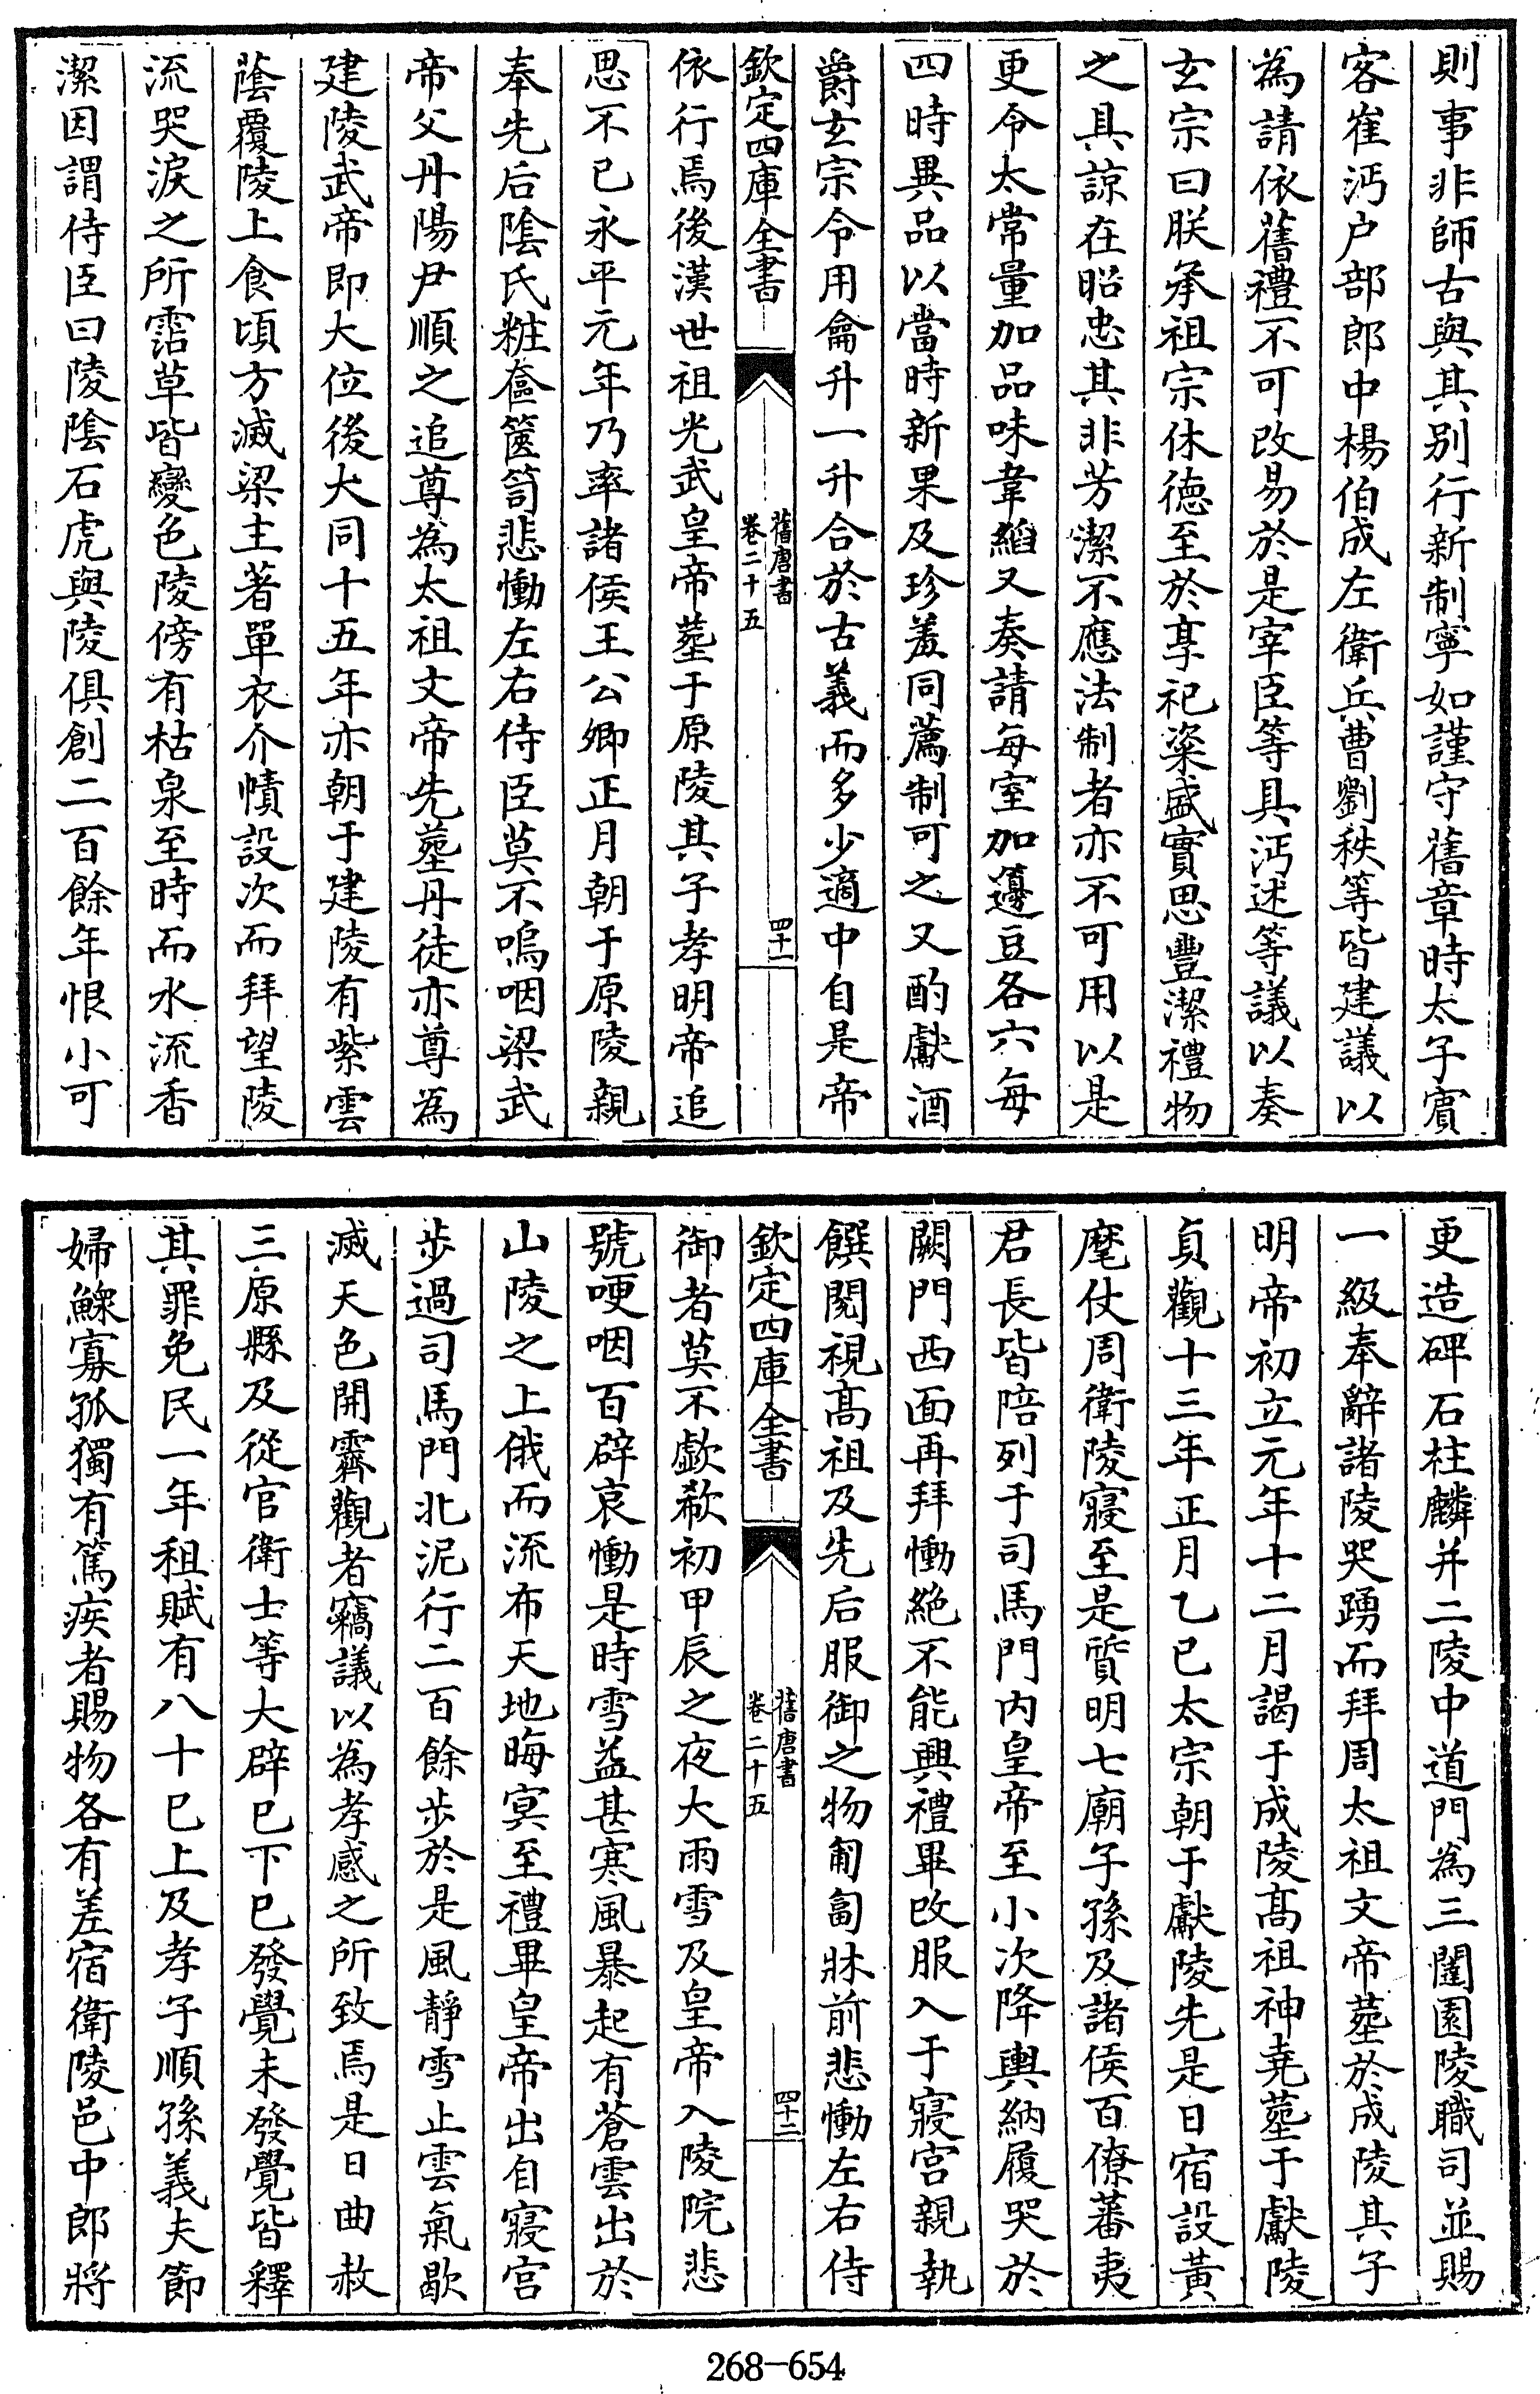 則事非師古與其别行新制寧如謹守舊章時太子賓
客崔沔户部郎中楊伯成左衛兵曹劉秩等皆建議以
為請依舊禮不可改易於是宰臣等具沔述等議以奏
玄宗曰朕承祖宗休德至於享祀粢盛實思豐潔禮物
之具諒在昭忠其非芳潔不應法制者亦不可用以是
更令太常量加品味韋縚又奏請每室加籩豆各六每
四時異品以當時新果及珍羞同薦制可之又酌獻酒
爵玄宗令用龠升一升合於古義而多少適中自是帝
欽定四庫全書
舊唐書
卷二十五
四十一
依行焉後漢世祖光武皇帝塟于原陵其子孝明帝追
思不已永平元年乃率諸侯王公卿正月朝于原陵親
奉先后陰氏粧奩篋笥悲慟左右侍臣莫不嗚咽梁武
帝父丹陽尹順之追尊為太祖文帝先塟丹徒亦尊為
建陵武帝即大位後大同十五年亦朝于建陵有紫雲
蔭覆陵上食頃方滅梁主著單衣介幘設次而拜望陵
流哭淚之所霑草皆變色陵傍有枯泉至時而水流香
潔因謂侍臣曰陵陰石虎與陵俱創二百餘年恨小可
更造碑石柱麟并二陵中道門為三闥園陵職司並賜
一級奉辭諸陵哭踴而拜周太祖文帝塟於成陵其子
明帝初立元年十二月謁于成陵髙祖神堯塟于獻陵
貞觀十三年正月乙巳太宗朝于獻陵先是日宿設黃
麾仗周衛陵寢至是質明七廟子孫及諸侯百僚蕃夷
君長皆陪列于司馬門内皇帝至小次降輿納履哭於
闕門西面再拜慟絶不能興禮畢改服入于寢宫親執
饌閱視髙祖及先后服御之物匍匐牀前悲慟左右侍
欽定四庫全書
舊唐書
卷二十五
四十二
御者莫不歔欷初甲辰之夜大雨雪及皇帝入陵院悲
號哽咽百辟哀慟是時雪益甚寒風暴起有蒼雲出於
山陵之上俄而流布天地晦冥至禮畢皇帝出自寢宫
步過司馬門北泥行二百餘步於是風静雪止雲氣歇
滅天色開霽觀者竊議以為孝感之所致焉是日曲赦
三原縣及從官衛士等大辟已下已發覺未發覺皆釋
其罪免民一年租賦有八十已上及孝子順孫義夫節
婦鰥寡孤獨有篤疾者賜物各有差宿衛陵邑中郎將
268-654